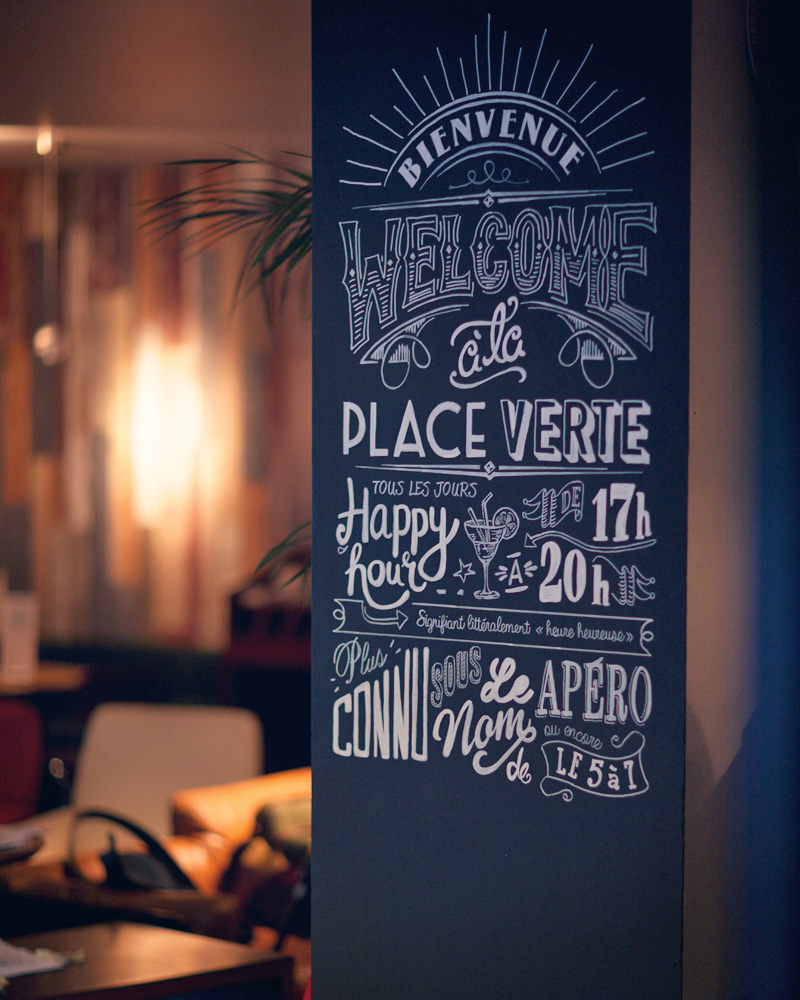 BIENVENUE
WELCOME
à la
PLACE VERTE
TOUS LES JOURS
Happy
hour
DE 17h
À 20h
Signifiant littéralement « heure heureuse »
Plus
CONNU
SOUS
Le
Nom
de
APÉRO
ou encore
LE 5 à 7